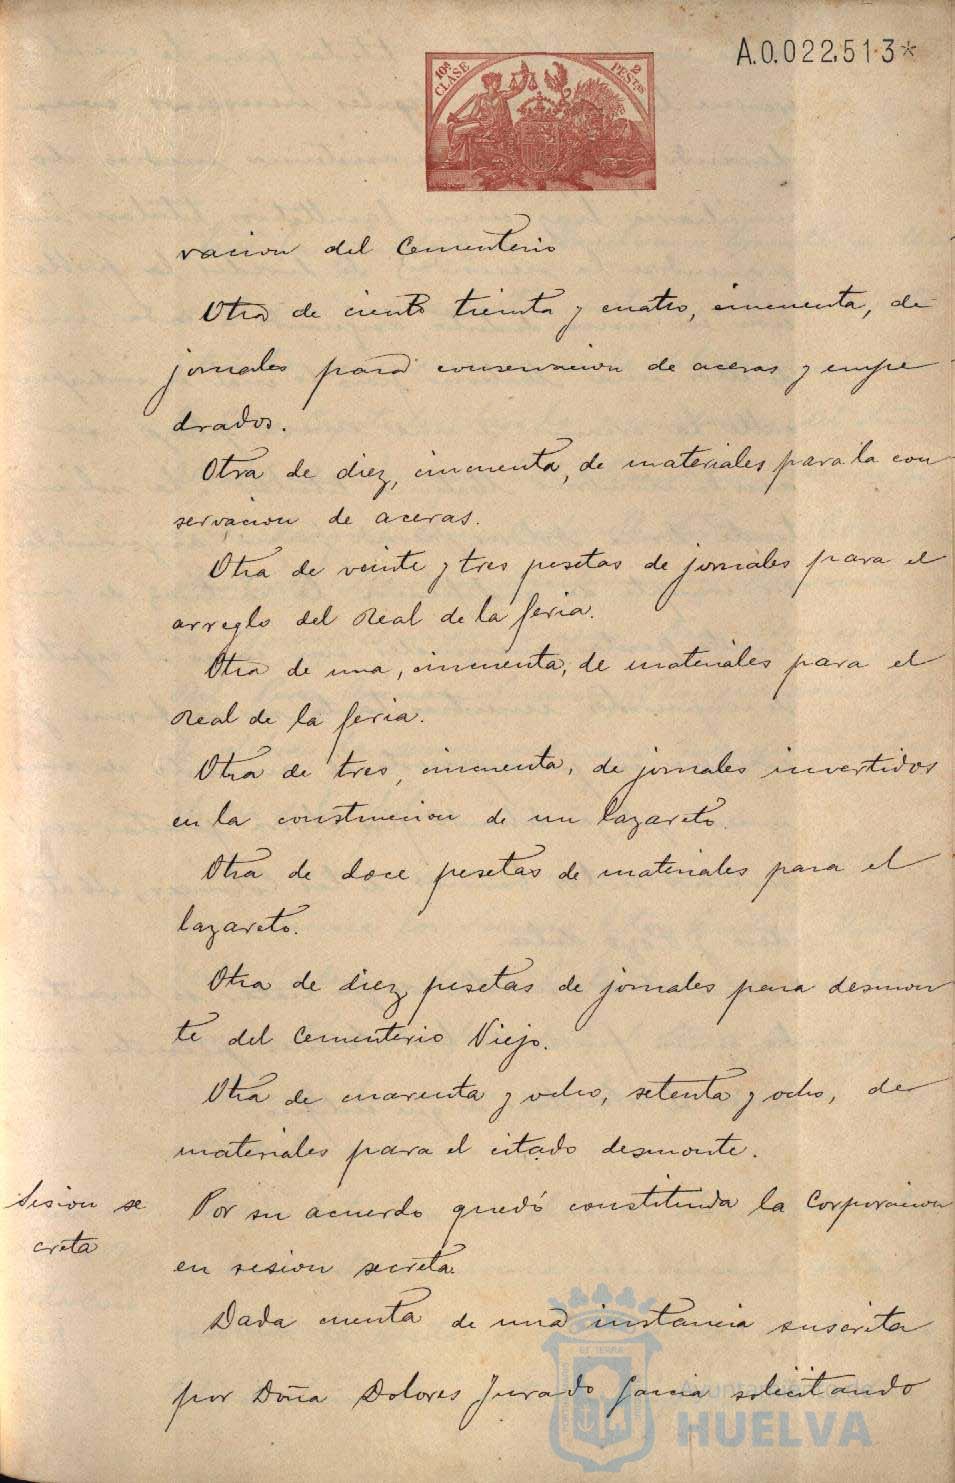 A.0.022.513*
10ª CLASE
2 PESTAS
vacion del Cementerio
Otra de ciento treinta y cuatro, cincuenta, de
jornales para conservacion de aceras y empe
drados.
Otra de diez, cincuenta, de materiales para la con
servacion de aceras.
Otra de veinte y tres pesetas de jornales para el
arreglo del Real de la feria.
Otra de una, cincuenta, de materiales para el
Real de la feria.
Otra de tres, cincuenta, de jornales invertidos
en la construccion de un lazareto.
Otra de doce pesetas de materiales para el
lazareto.
Otra de diez pesetas de jornales para desmon
te del Cementerio Viejo.
Otra de cuarenta y ocho, setenta y ocho, de
materiales para el citado desmonte.
Sesion se
creta
Por su acuerdo quedó constituida la Corporacion
en sesion secreta.
Dada cuenta de una instancia suscrita
por Doña Dolores Jurado Garcia solicitando
Ayuntamiento de
HUELVA